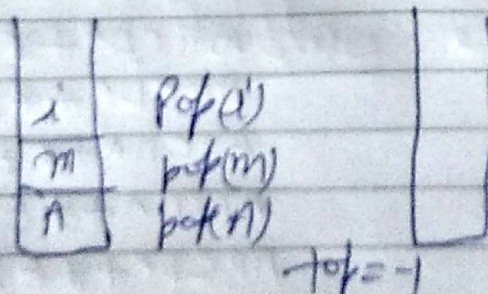 i Pop(i)
m pop(m)
n pop(n)
top = -1